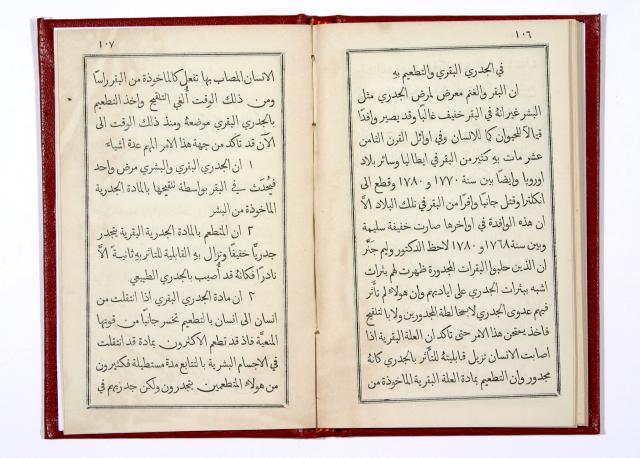 ١٠٦
في الجدري البقري والتطعيم به
ان البقر والغنم معرض لمرض الجدري مثل
البشر غير انه في البقر خفيف غالبًا وقد يصير وافدًا
قتالاً للحيوان كما للانسان وفي اوائل القرن الثامن
عشر مات به كثير من البقر في ايطاليا وسائر بلاد
اوروبا وايضًا بين سنة ١٧٧٠ و ١٧٨٠ وقطع الى
انكلترا وقتل جانبًا وافرًا من البقر في تلك البلاد الاَّ
ان هذه الوافدة في اواخرها صارت خفيفة سليمة
وبين سنة ١٧٦٨ و ١٧٨٠ لاحظ الدكتور وليم جَنَّر
ان الذين حلبوا البقرات المجدورة ظهرت لهم بثرات
اشبه ببثرات الجدري على اياديهم وان هولاء لم تأثَّر
فيهم عدوى الجدري لا بمخالطة المجدورين ولا بالتلقيح
فاخذ يمتحن هذا الامر حتى تأكد ان العلة البقرية اذا
اصابت الانسان تزيل قابليته للتأثر بالجدري كانه
مجدور وان التطعيم بمادة العلة البقرية الماخوذة من
١٠٧
الانسان المصاب بها تفعل كالماخوذة من البقر راسًا
ومن ذلك الوقت أُلغي التلقيح واخذ التطعيم
بالجدري البقري موضعه ومنذ ذلك الوقت الى
الآن قد تاكد من جهة هذا الامر المهم عدة اشياء
١ ان الجدري البقري والبشري مرض واحد
فيُحدَث في البقر بواسطة تلقيحها بالمادة الجدرية
الماخوذة من البشر
٢ ان المتطعم بالمادة الجدرية البقرية يتجدر
جدريًا خفيفًا وتزال به القابلية للتاثر به ثانيةً الاَّ
نادرًا فكانه قد أُصيب بالجدري الطبيعي
٣ ان مادة الجدري البقري اذا انتقلت من
انسان الى انسان بالتطعيم تخسر جانبًا من قوتها
فاذ قد تطعم الاكثرون بمادة قد انتقلت
في الاجسام البشرية بالتتابع مدة مستطيلة فكثيرون
من هولاء المتطعمين يتجدرون ولكن جدريهم في